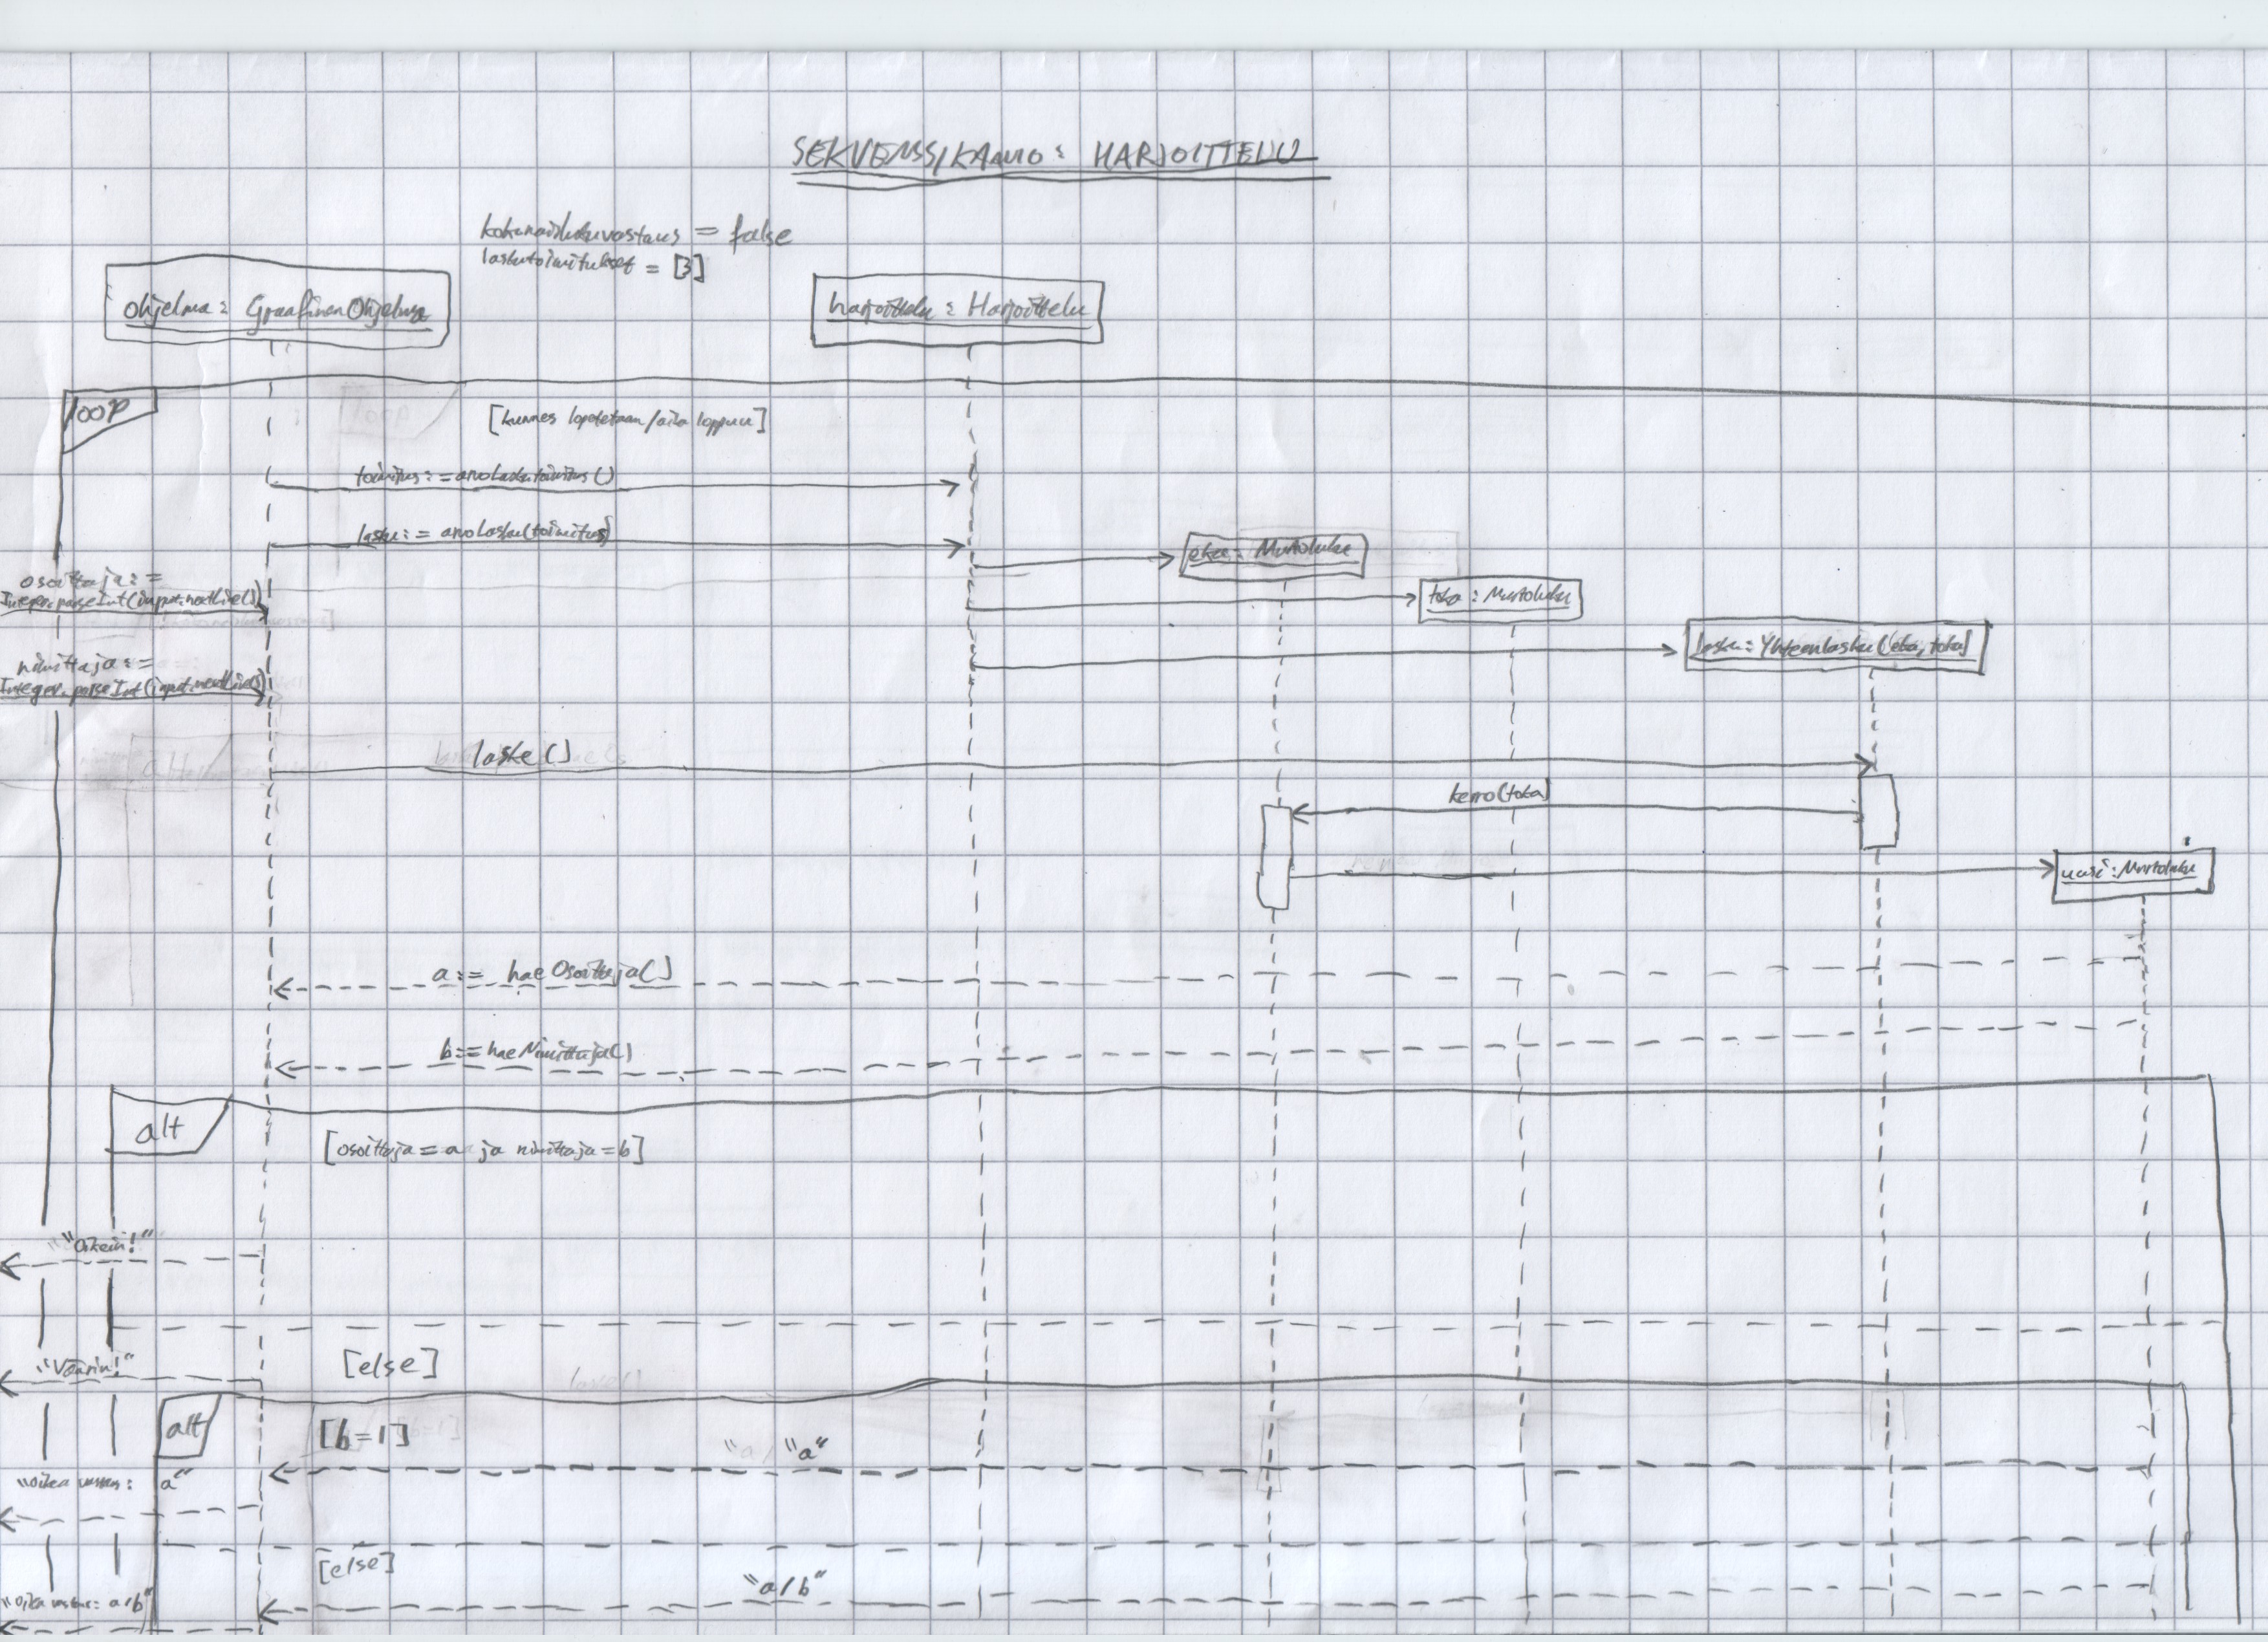 SEKVENSSIKAAVIO: HARJOITTELU
kokonaislukuvastaus = false
laskutoimitukset = [3]
ohjelma: GraafinenOhjelma
harjoittelu: Harjoittelu
loop
[kunnes lopetetaan/aika loppuu]
toimitus:=arvoLaskutoimitus()
lasku:= arvoLasku(toimitus)
eka: Murtoluku
osoittaja:=
Integer.parseInt(input.nextLine())
toka: Murtoluku
lasku: Yhteenlasku(eka, toka)
nimittaja:=
Integer.parseInt(input.nextLine())
laske()
kerro(toka)
uusi: Murtoluku
a:= haeOsoittaja()
b:=haeNimittaja()
alt
[osoittaja=a ja nimittaja=b]
"Oikein!"
"Väärin!"
[else]
alt
[b=1]
"a"
"Oikea vastaus: a"
[else]
"a/b"
"Oikea vastaus: a/b"